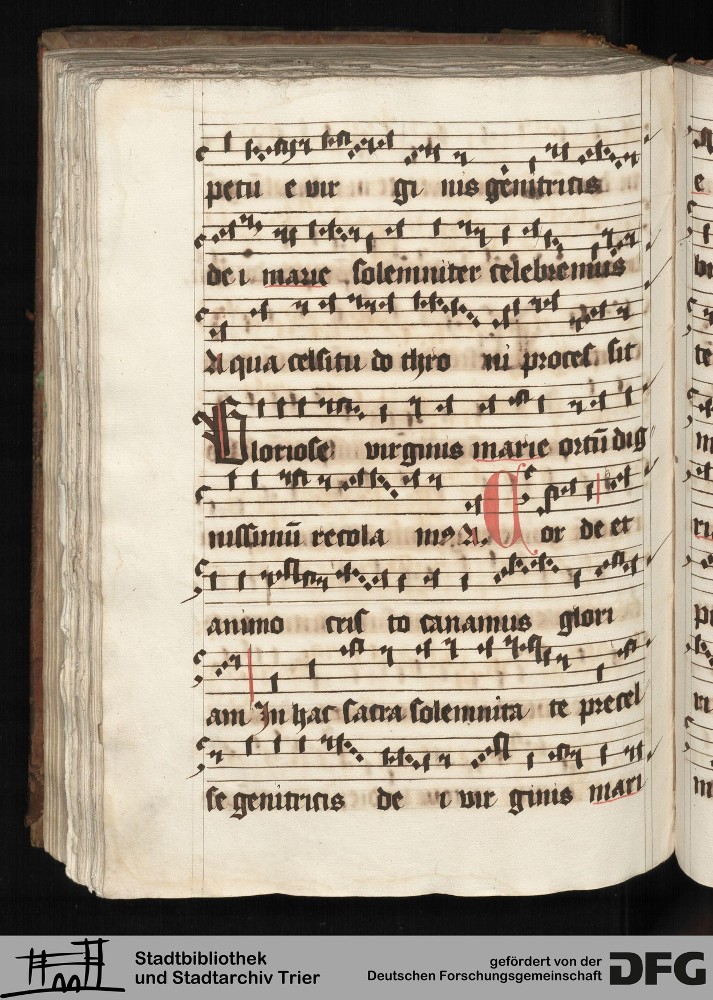 petu e vir gi nis genitricis
de i marie solemniter celebremus
A qua celsitu do thro ni proces sit
Gloriose virginis marie ortū dig
nissimū recola mꝰ. A. Cor de et
animo cris to canamus glori
am In hac sacra solemnita te precel
se genitricis de i vir ginis mari
Stadtbibliothek
und Stadtarchiv Trier
gefördert von der
Deutschen Forschungsgemeinschaft
DFG